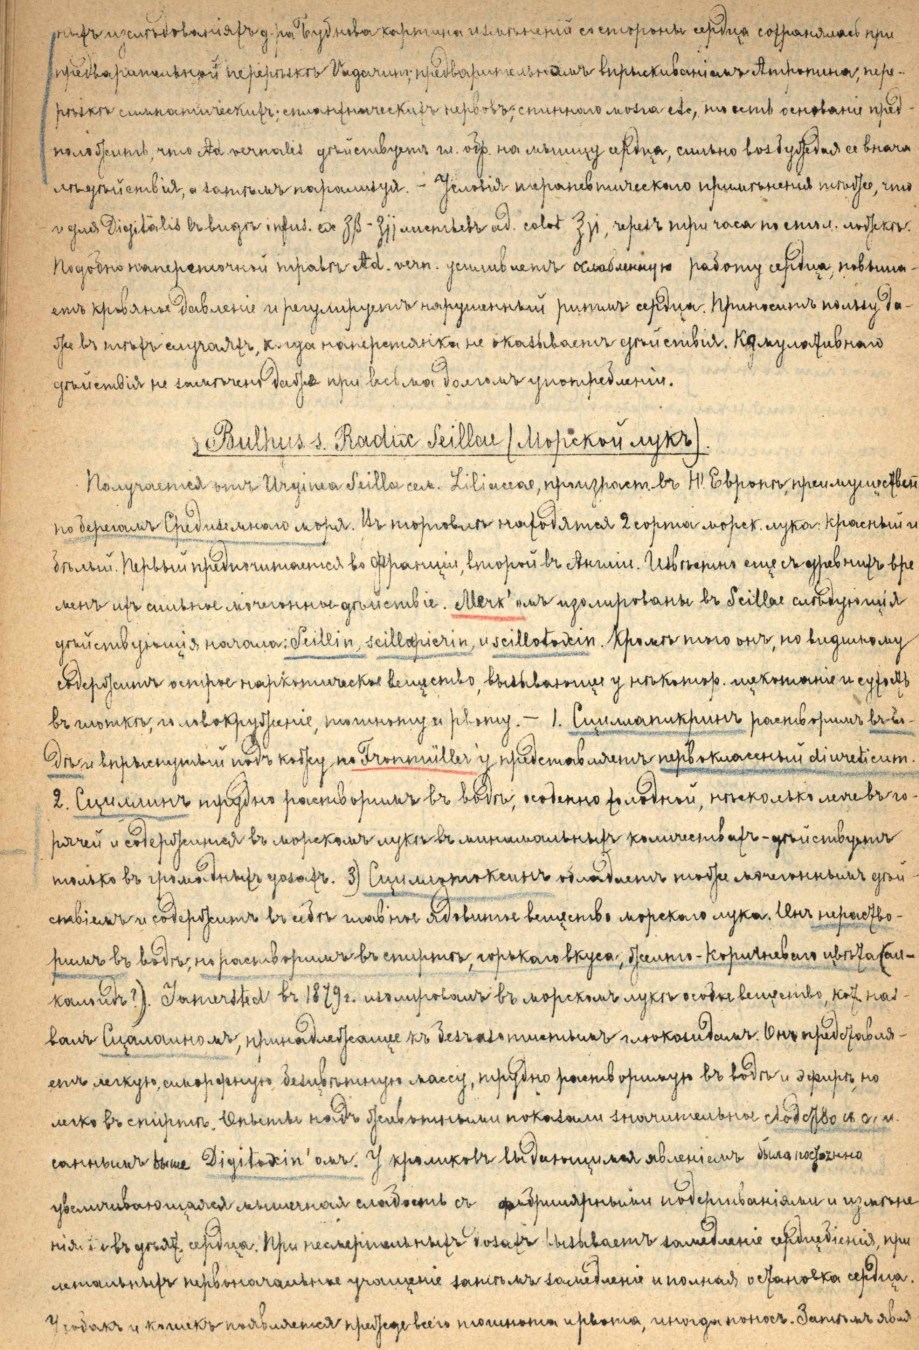 ныхъ изслѣдованіяхъ д-ра Бубнова картина измѣненій со стороны сердца сохранялась при
предварительной перерѣзкѣ Vagorum, предварительномъ впрыскиваніи Атропина, пере-
рѣзкѣ симпатическихъ, спланхническихъ нервовъ, спинного мозга etc, то есть основаніе пред-
положить, что Ad. vernalis дѣйствуетъ гл. обр. на мышцу сердца, сильно возбуждая ее внача
лѣ дѣйствія, а затѣмъ парализуя. – Условія терапевтическаго примѣненія тѣже, что
и для Digitalis въ видѣ infus. ex ʒβ – ʒjj листьевъ ad. colat ℥vj, черезъ три часа по стол. ложкѣ.
Подобно наперсточной травѣ Ad. vern. усиливаетъ ослабленную работу сердца, повыша-
етъ кровяное давленіе и регулируетъ нарушенный ритмъ сердца. Приноситъ пользу да-
же въ тѣхъ случаяхъ, когда наперстянка не оказываетъ дѣйствія. Кумулативнаго
дѣйствія не замѣчено даже при весьма долгомъ употребленіи.
Bulbus s. Radix Scillae (Морской лукъ).
Получается отъ Urginea Scilla сем. Liliaceae, произраст. въ Ю. Европѣ, преимуществен
по берегамъ Средиземнаго моря. Въ торговлѣ находятся 2 сорта морск. лука: красный и
бѣлый. Первый предпочитается во Франціи, второй въ Англіи. Извѣстно еще съ древнихъ вре
менъ ихъ сильное мочегонное дѣйствіе. Merk'омъ изолированы въ Scillae слѣдующія
дѣйствующія начала: Scillin, scillapicrin, и scillotoxin. Кромѣ того онъ, по видимому
содержитъ острое наркотическое вещество, вызывающее у нѣкотор. щекотаніе и сухость
въ глоткѣ, головокруженіе, тошноту и рвоту. – 1. Сциллапикринъ растворимъ въ во-
дѣ и впрыснутый подъ кожу по Fronmüller'у представляетъ первоклассный diureticum.
2. Сциллинъ трудно растворимъ въ водѣ, особенно холодной, нѣсколько легче въ го-
рячей и содержится въ морскомъ лукѣ въ минимальныхъ количествахъ – дѣйствуетъ
только въ громадныхъ дозахъ. 3) Сциллотоксинъ обладаетъ тоже мочегоннымъ дѣй-
ствіемъ и содержитъ въ себѣ главное ядовитое вещество морскаго лука. Онъ нераство-
римъ въ водѣ, но растворимъ въ спиртѣ, горькаго вкуса, желто-коричневаго цвѣта (ал-
калоидъ?). Jarmersted въ 1879 г. изолировалъ въ морскомъ лукѣ особое вещество, кот. наз-
валъ Сцилаиномъ, принадлежащее къ безъазотистымъ глюкозидамъ. Онъ представля-
етъ легкую, аморфную, безцвѣтную массу, трудно растворимую въ водѣ и эфирѣ, но
легко въ спиртѣ. Опыты надъ животными показали значительное сходство съ опи-
саннымъ выше Digitoxin'омъ. У кроликовъ выдающимся явленіемъ была постоянно
увеличивающаяся мышечная слабость съ фибриллярными подергиваніями и измѣне
нія въ дѣят. сердца. При несмертельныхъ дозахъ вызываетъ замедленіе сердцебіенія, при
летальныхъ первоначальное учащеніе затѣмъ замедленіе и полная остановка сердца.
У собакъ и кошекъ появляется прежде всего тошнота и рвота, иногда поносъ. Затѣмъ явля